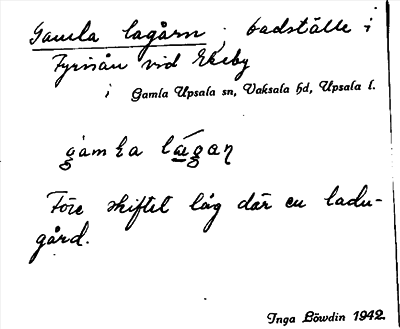 Gamla lagårn, badställe i
Fyrisån vid Ekeby
i Gamla Upsala sn, Vaksala hd, Upsala l.
gamla
Före skiftet låg där en ladu-
gård.
Inga Löwdin 1942.